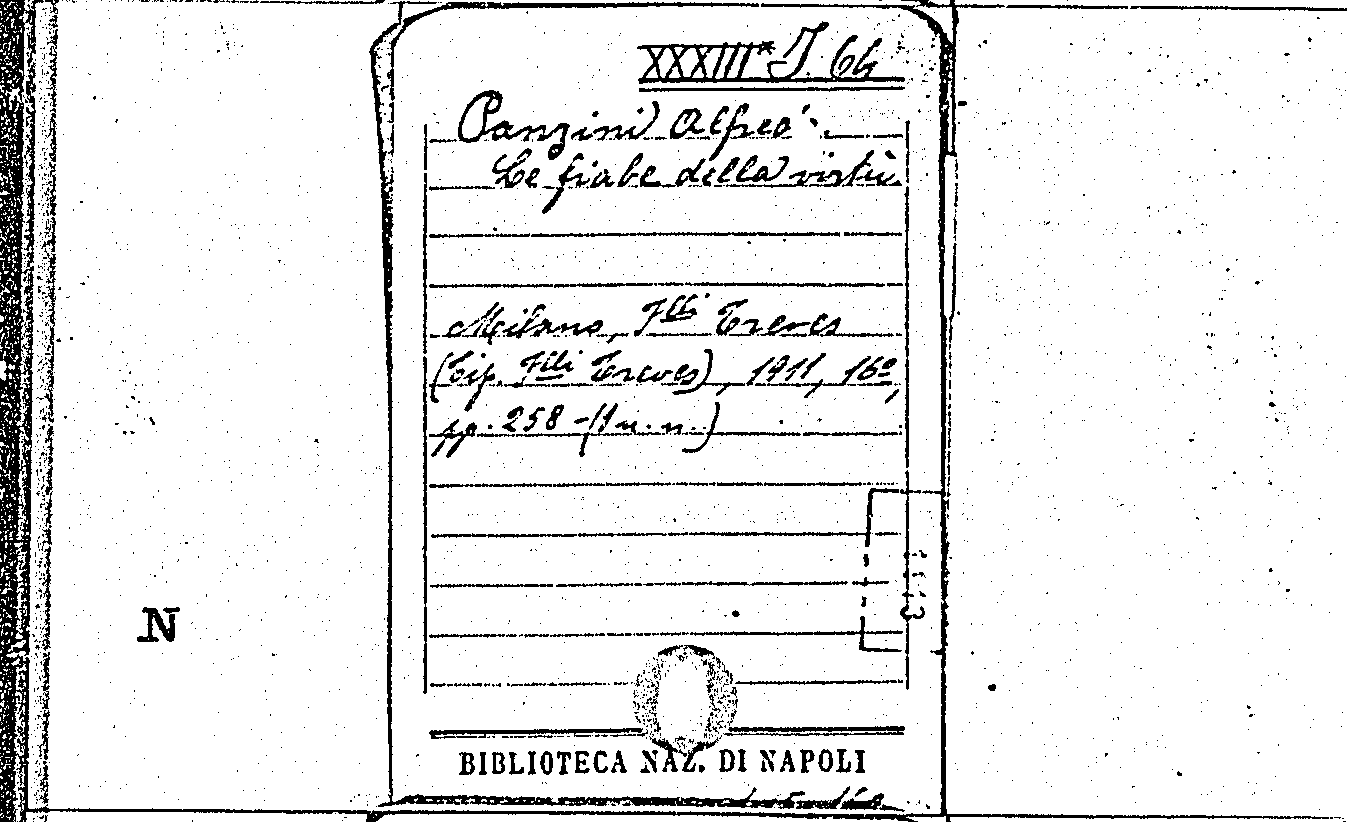 XXXIII* J. 64
Panzini Alfredo.
Le fiabe della virtù.
Milano, F.lli Treves
(Tip. F.lli Treves), 1911, 16º,
pp. 258-(1 n. n.)
N
BIBLIOTECA NAZ. DI NAPOLI